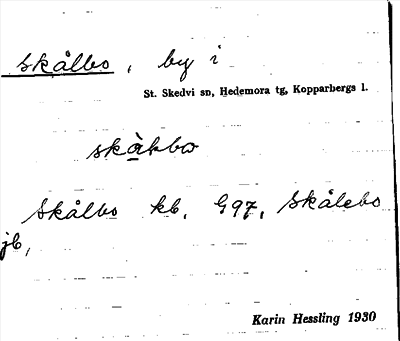 Skålbo, by i
St. Skedvi sn, Hedemora tg, Kopparbergs l.
skàkbo
Skålbo kb, G97, Skålebo
jb,
Karin Hessling 1930